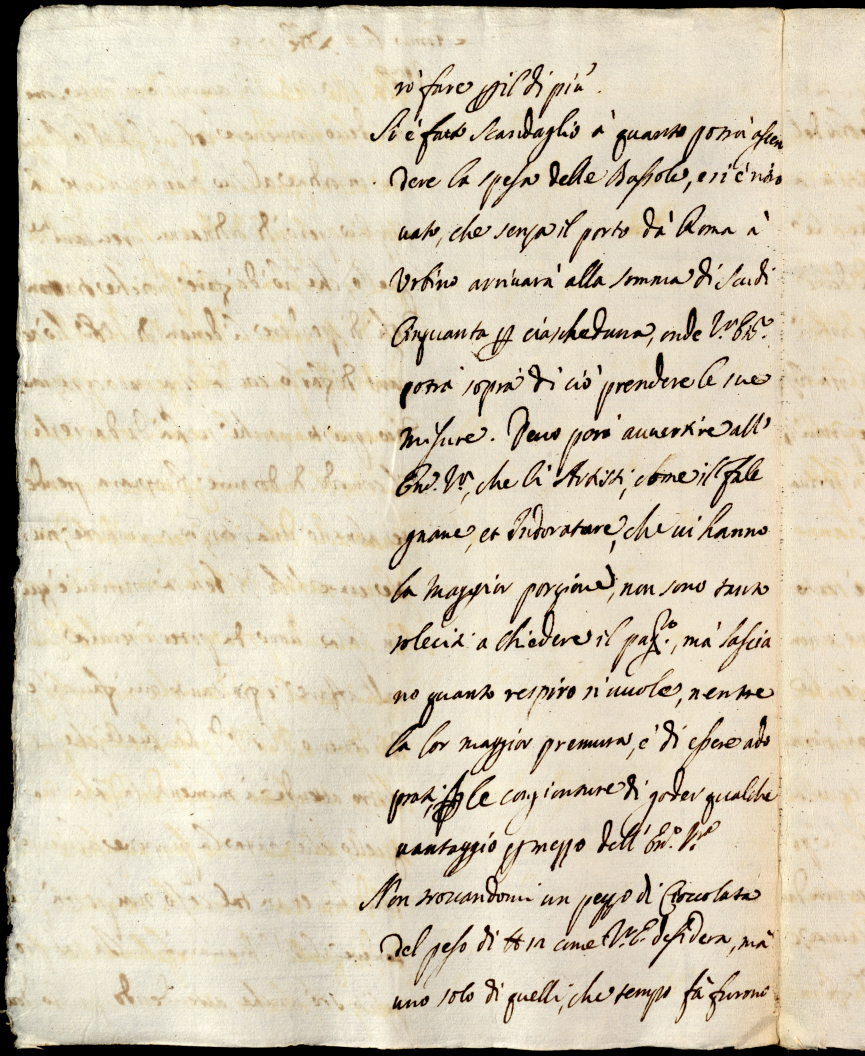 rò fare ꝑ il di più.
Si è fatto Scandaglio à quanto potrà ascen
dere la spesa delle Bussole, e si è tro
uato, che senza il porto dà Roma à
Urbino arriuarà alla somma di Scudi
Cinquanta ꝑ ciascheduna, onde V.ra Em.za
potrà soprà di ciò prendere le sue
misure. Deuo però auuertire all'
Em.za V.ra, che li Artisti, come il fale
gname, et Indoratore, che ui hanno
la maggior porzione, non sono tanto
soleciti a chiedere il pag.to, mà lascia
no quanto respiro si uuole, mentre
la lor maggior premura, è di essere ado
prati, ꝑ le congionture di goder qualche
uantaggio ꝑ mezzo dell' Em.za V.ra
Non trouandomi un pezzo di Cioccolata
del peso di come V.ra E. desidera, mà
uno solo di quelli, che tempo fà furono